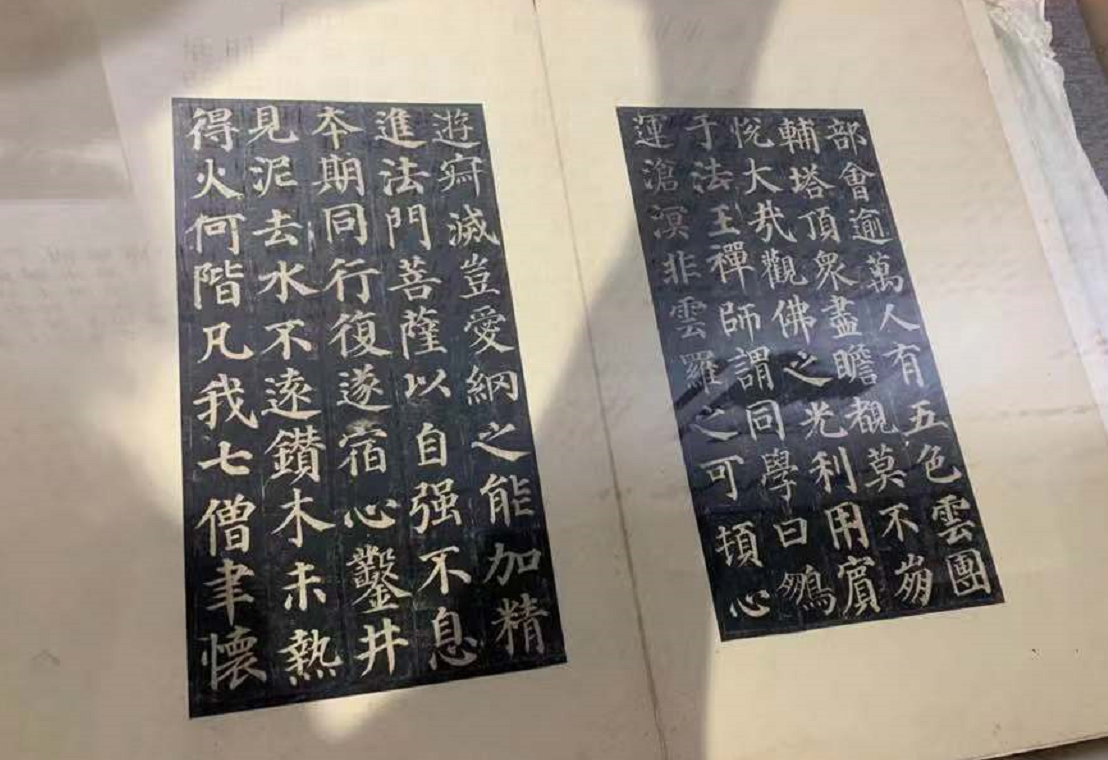 部會逾萬人有五色雲團
輔塔頂衆盡瞻覩莫不崩
悅大哉觀佛之光利用賓
于法王禪師謂同學曰鵬
運滄溟非雲羅之可頓心
遊寂滅豈愛網之能加精
進法門菩薩以自强不息
夲期同行復遂宿心鑿井
見泥去水不遠鑽木未熱
得火何階凡我七僧聿懷